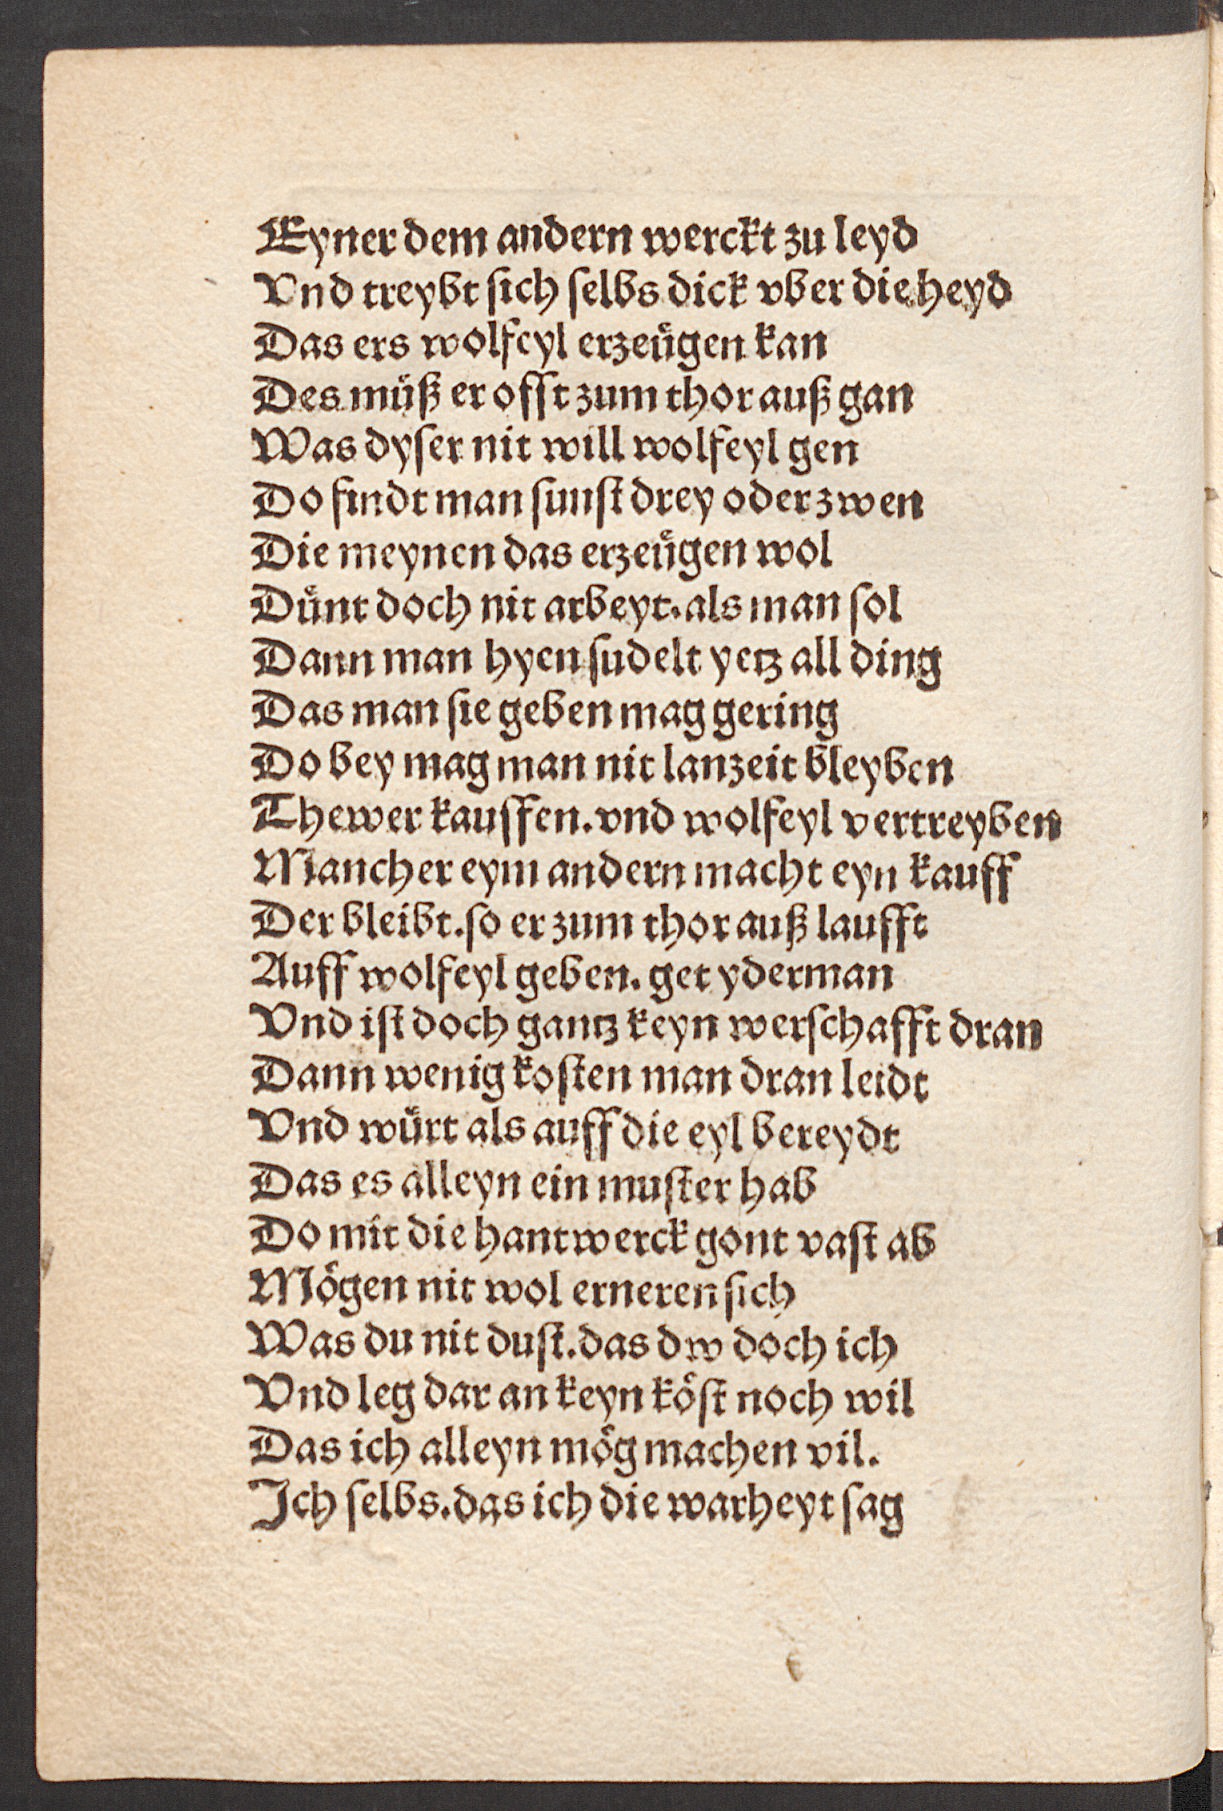 Eyner dem andern werckt zu leyd
Vnd treybt sich selbs dick vber die heyd
Das ers wolfeyl erzeügen kan
Des müß er offt zum thor auß gan
Was dyser nit will wolfeyl gen
Do findt man sunst drey oder zwen
Die meynen das erzeügen wol
Dünt doch nit arbeyt. als man sol
Dann man hyen sudelt yetz all ding
Das man sie geben mag gering
Do bey mag man nit lanzeit bleyben
Thewer kauffen. vnd wolfeyl vertreyben
Mancher eym andern macht eyn kauff
Der bleibt. so er zum thor auß laufft
Auff wolfeyl geben. get yderman
Vnd ist doch gantz keyn werschafft dran
Dann wenig kosten man dran leidt
Vnd würt als auff die eyl bereydt
Das es alleyn ein muster hab
Do mit die hantwerck gont vast ab
Mögen nit wol erneren sich
Was du nit dust. das dw doch ich
Vnd leg dar an keyn köst noch wil
Das ich alleyn mög machen vil.
Ich selbs. das ich die warheyt sag